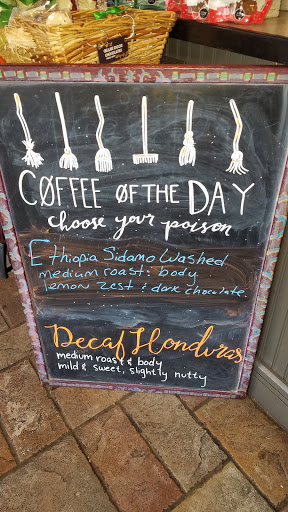 CØFFEE ØF THE DAY
choose your poison
Ethiopia Sidamo Washed
medium roast : body
lemon zest & dark chocolate.
Decaf Honduras
medium roast & body
mild & sweet, slightly nutty